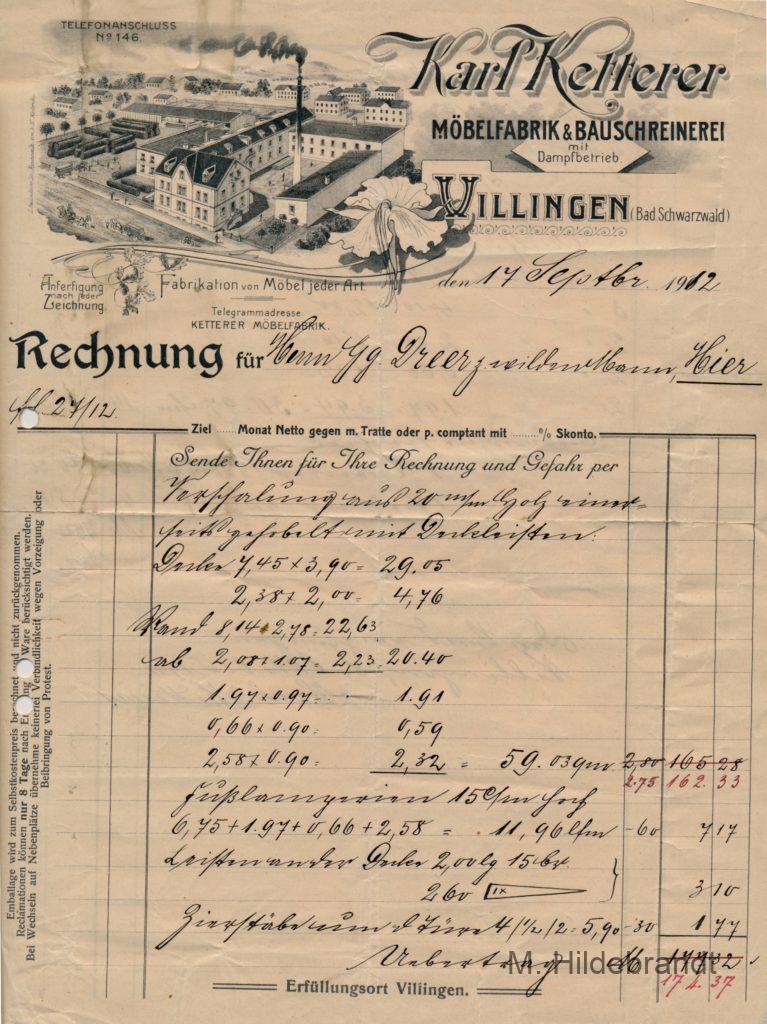 TELEFONANSCHLUSS
No 146.
Karl Ketterer
MÖBELFABRIK & BAUSCHREINEREI
mit
Dampfbetrieb.
VILLINGEN (Bad Schwarzwald)
Anfertigung
nach jeder
Zeichnung.
Fabrikation von Möbel jeder Art.
Telegrammadresse
KETTERER MÖBELFABRIK.
den 17 Septbr. 1912
Rechnung für Herrn Gg. Dreer z wilden Mann, Hier
27/12.
Ziel ...... Monat Netto gegen m. Tratte oder p. comptant mit ...... % Skonto.
Sende Ihnen für Ihre Rechnung und Gefahr per
Verschalung aus 20 m/m Holz einer-
seits gehobelt mit Deckleisten:
Decke 7,45 x 3,90 = 29.05
2,38 x 2,00 = 4,76
Wand 8,14 x 2,78 = 22,63
ab 2,08 x 1.07 = 2,23 20.40
1.97 x 0.97 = 1.91
0,66 x 0.90 = 0,59
2,58 x 0.90 = 2,32 = 59.03 qm 2,80 165 28
2.75 162. 33
Fußlamperien 15 c/m hoch
6,75 + 1.97 + 0,66 + 2,58 = 11,96 lfm -60 7 17
Leisten an der Decke 2,00 lg 15 br.
260 IX } 3 10
Zierstäbe um d Türe 4/1/2/2 = 5,90 -30 1 77
Uebertrag M 177 32
174. 37
Erfüllungsort Villingen.
Emballage wird zum Selbstkostenpreis berechnet und nicht zurückgenommen.
Reclamationen können nur 8 Tage nach Ware berücksichtigt werden.
Bei Wechseln auf Nebenplätze übernehme keinerlei Verbindlichkeit wegen Vorzeigung oder
Beibringung von Protest.
M. Hildebrandt